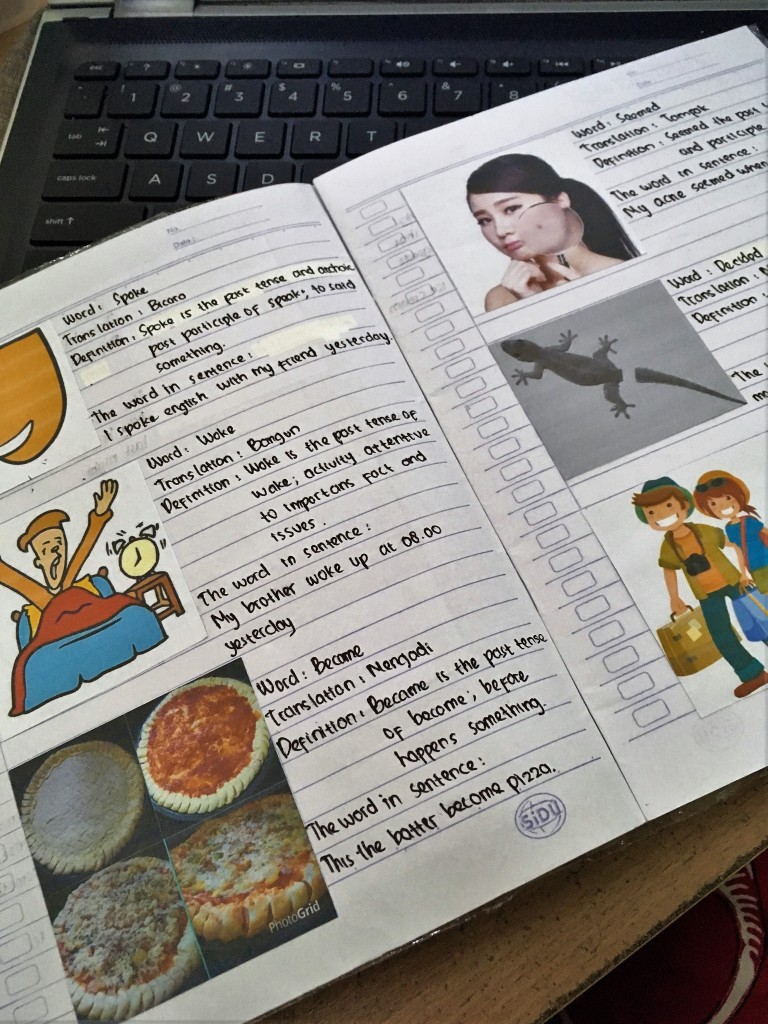 esc
?
1
@
2
#
3
$
4
%
5
^
6
&
7
*
8
tab
Q
W
E
R
T
caps lock
A
S
D
shift
No.
Date :
Word : Spoke
Translation : Bicara
Definition : Spoke is the past tense and archaic
past participle of speak; to said
something.
The word in sentence :
I spoke english with my friend yesterday.
Word : Woke
Translation : Bangun
Definition : Woke is the past tense of
wake; activity attentive
to importans fact and
issues.
The word in sentence :
My brother woke up at 08.00
yesterday
Word : Became
Translation : Menjadi
Definition : Became is the past tense
of become; before
happens something.
The word in sentence :
This the batter become pizza.
PhotoGrid
SiDU
Word : Seemed
Translation : Tampak
Definition : Seemed the past
and participle
The word in sentence :
My acne seemed when
Word : Decided
Translation :
Definition :
The